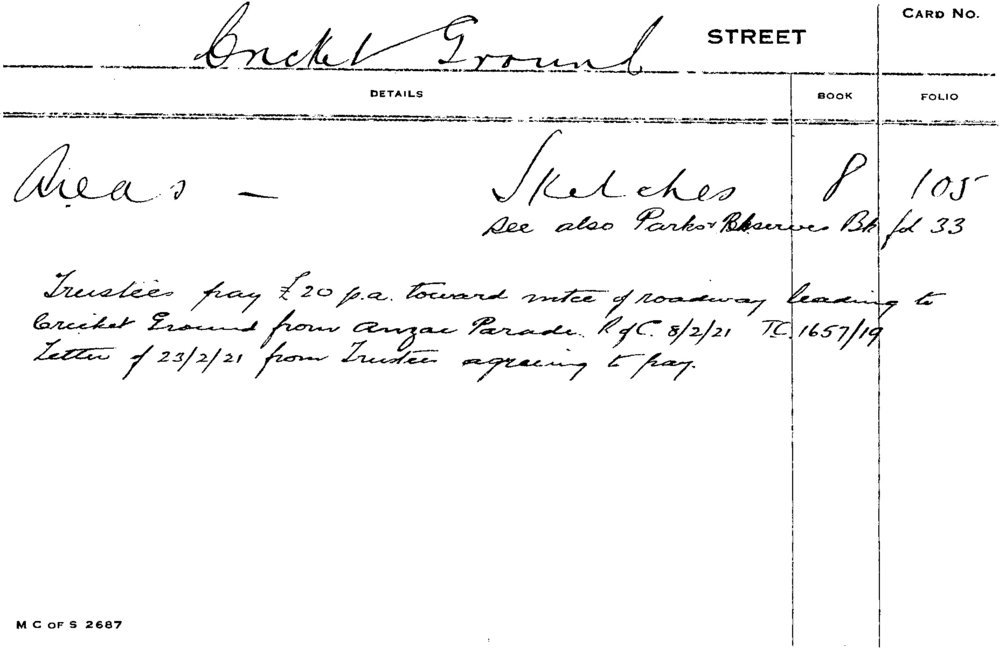 CARD NO.
Cricket Ground STREET
DETAILS BOOK FOLIO
Areas – Sketches 8 105
See also Parks & Reserves Bk fol 33
Trustees pay £20 p.a. toward mtce of roadway leading to
Cricket Ground from Anzac Parade. R of C. 8/2/21 T.C. 1657/19
Letter of 23/2/21 from Trustees agreeing to pay.
M C OF S 2687